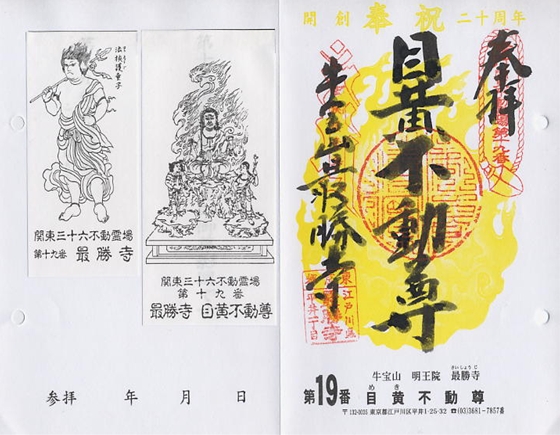 法挾護童子
関東三十六不動霊場
第十九番 最勝寺
関東三十六不動霊場
第十九番
最勝寺 目黄不動尊
参拝 年 月 日
開創 奉祝 二十周年
奉拝
目黄不動尊
牛宝山最勝寺
牛宝山 明王院 最勝寺
さいしょうじ
第19番 目黄不動尊
めき
〒132-0035 東京都江戸川区平井1-25-32 ☎(03)3681-7857番